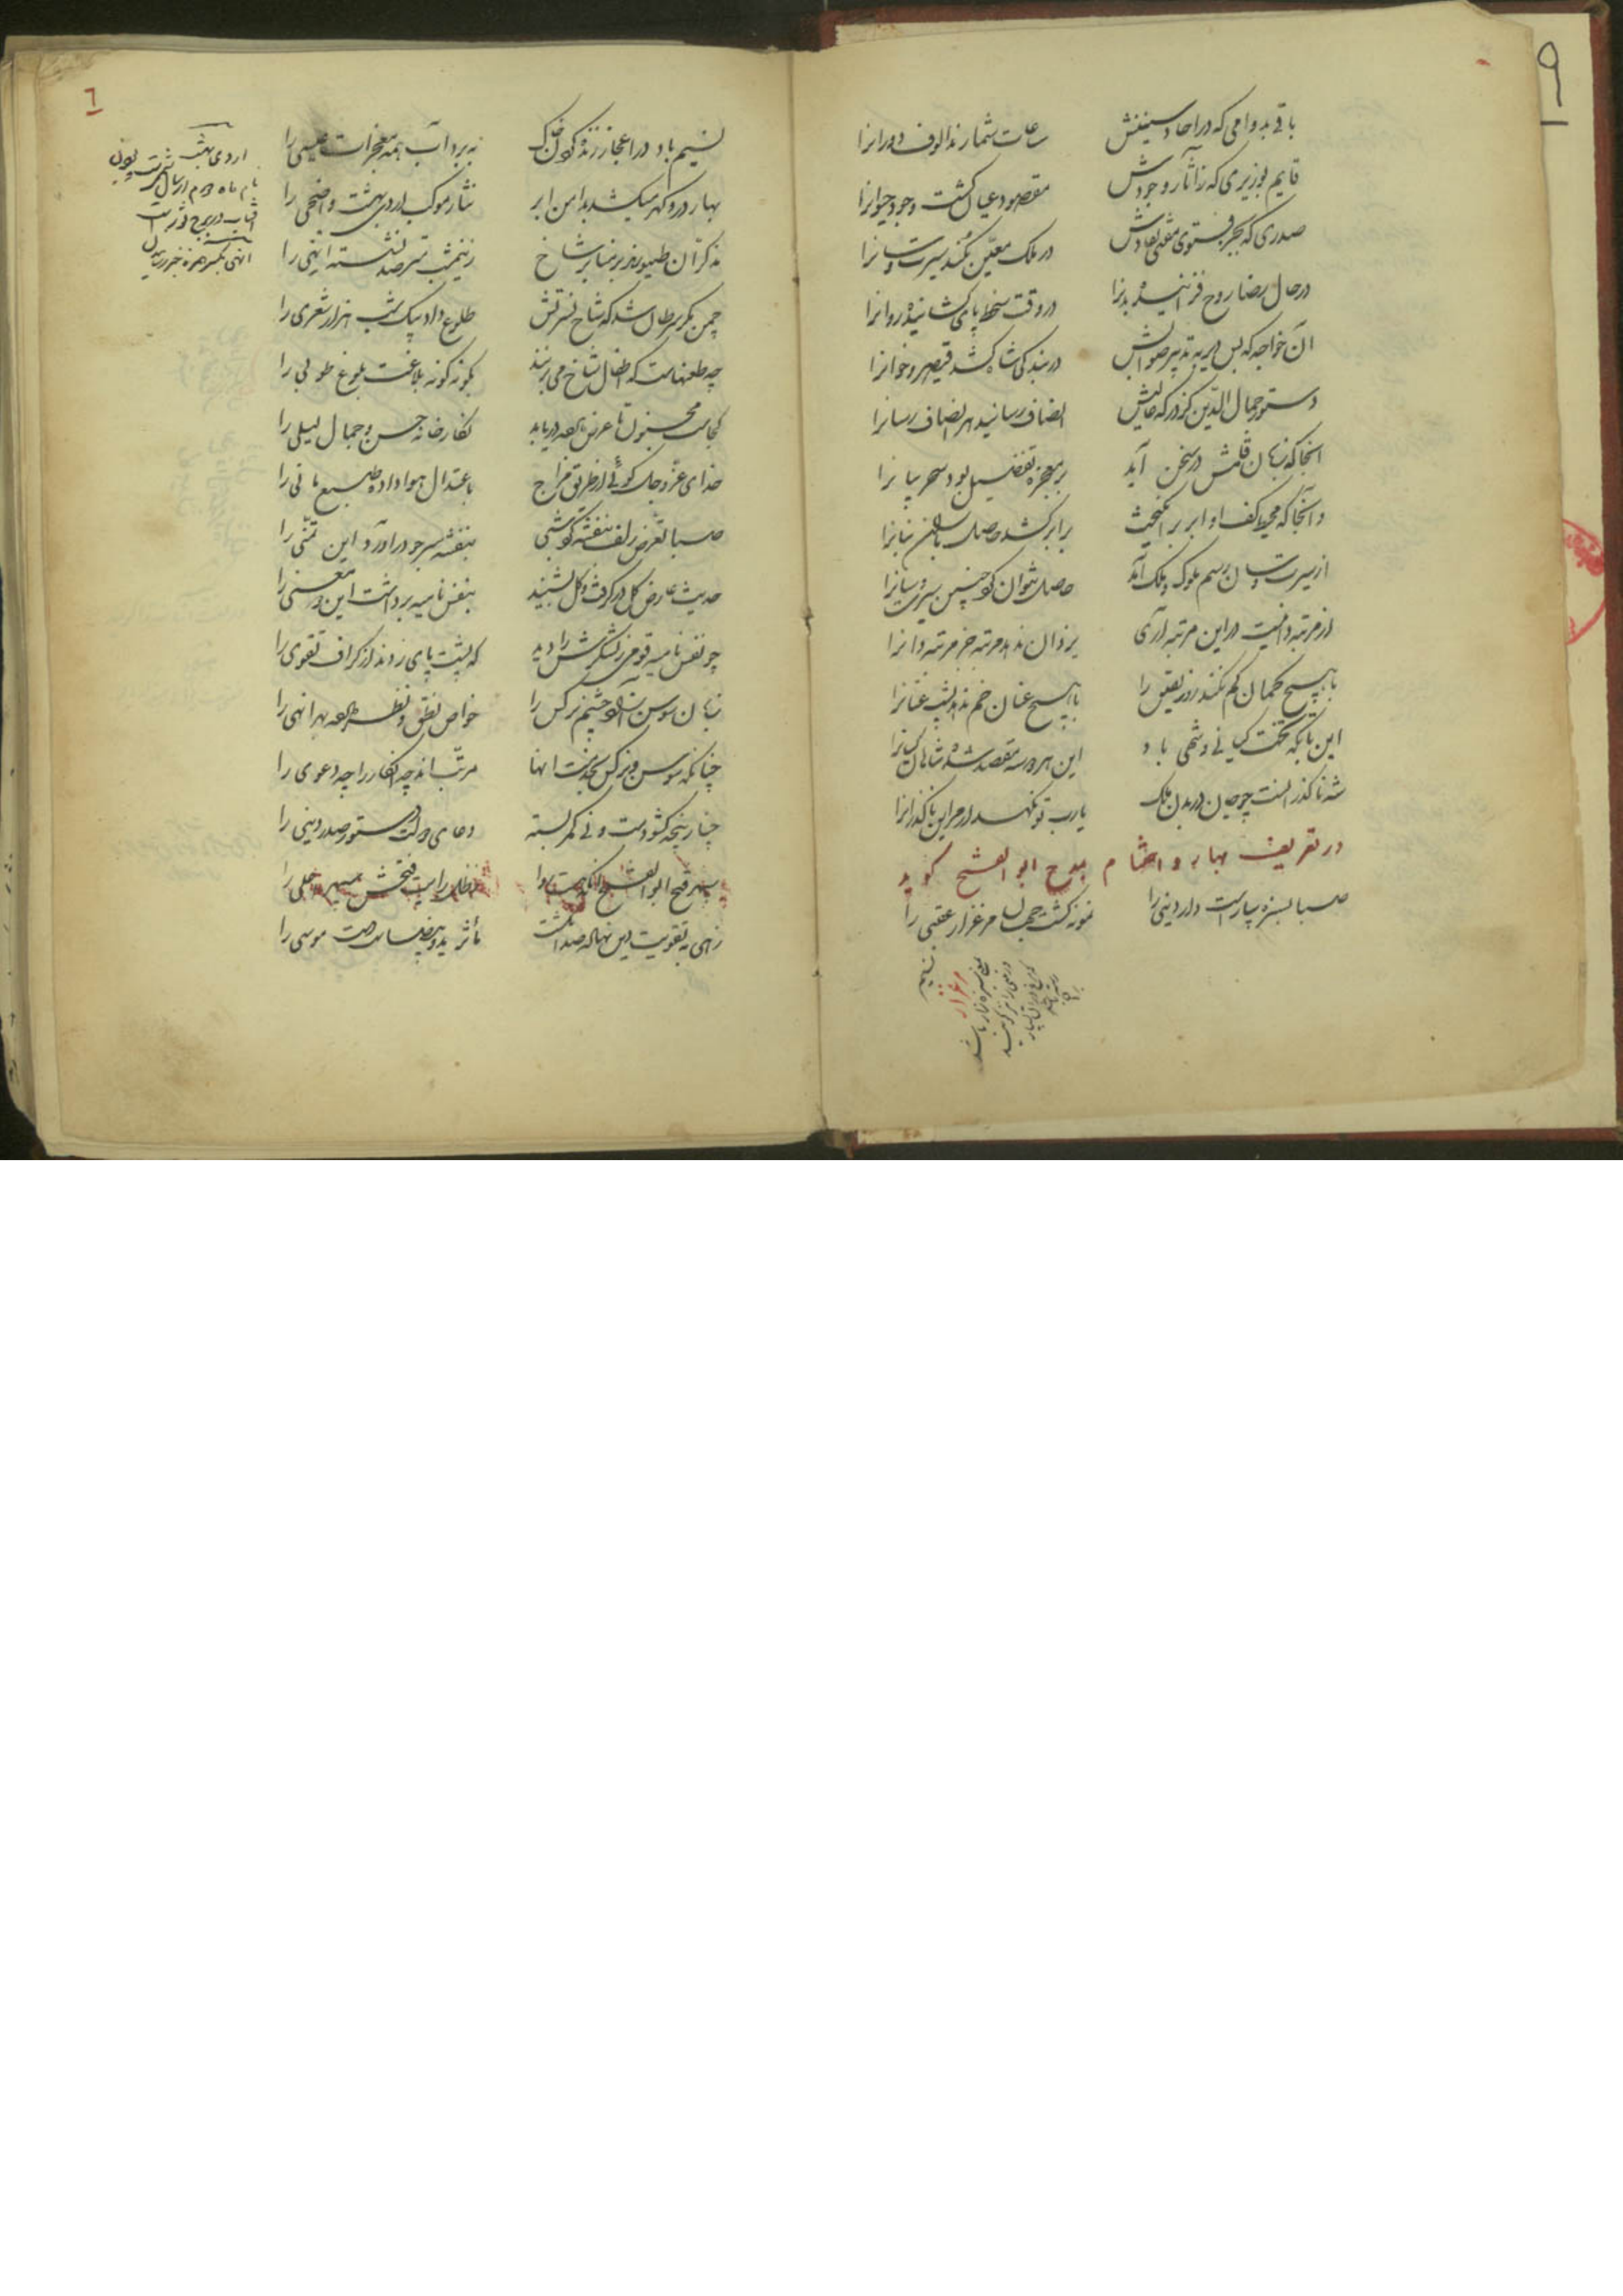 ۹
باقی بدوامی که در احاد سنینش ساعات شمارند الوف دورانرا
قایم بوزیری که ز آثار وجودش مقصود عیان گشت وجود حیوانرا
صدری که بجز فتوی مفتی نفاذش در ملک معین نکند سیرت و سانرا
در حال رضا روح فزاینده بدنرا در وقت سخط پای گشاینده روانرا
آن خواجه که بس دیر نه تدبیر صوابش در بندگی شاه کشد قیصر و خانرا
دستور جلال الدین کز درگه عالیش انصاف رسانید هر انصاف رسانرا
انجا که زبان قلمش در سخن آید بر معجزه تفضیل بود سحر بیانرا
و آنجا که محیط کف او ابر برانگیخت برابر کشد حاصل بنانرا
از سیرت و سان رسم ملوک و ملک آید حاصل نتوان کرد چنین سیرت و سانرا
در مرتبه دانیست در این مرتبه آری یزدان ندهد مرتبه جز مرتبه دانرا
با هیچ کمان کم نکند روز یقین را با هیچ عنان خم ندهد پشت عنانرا
این تا بگه تخت کیانی و شهی باد این هر دو شده مقصد شاهان کیانرا
شه ناگذر است چو جان در بدن ملک یارب تو نگهدار مر این ناگذرانرا
در تعریف بهار و اختتام بمدح ابو الفتح گوید
صبا بسبزه بیاراست دار دینی را نمونه گشت جهان مرغزار عقبی را
نسیم
مرغزار
٦
نسیم باد در اعجاز زنده کردن خاک ببرد آب همه معجزات عیسی را
بهار در و گهر میکشد بدامن ابر نثار موکب اردی بهشت و اضحی را
مذکران طیورند بر منابر شاخ ز نیمشب مترصد نشسته انهی را
چمن مگر سرطان شد که شاخ نسترنش طلوع داد بیک شب هزار شعری را
چه طعنهاست که اطفال شاخ می نزنند بگونه گونه بلاغت بلوغ طوبی را
کجاست مجنون تا عرض داده دریابد نگارخانه حسن و جمال لیلی را
خدای عز و جل گوئی از طریق مزاج باعتدال هوا داده طبع مانی را
صبا تعرض زلف بنفشه کرد شبی بنفشه سر چو درآورد این تمنی را
حدیث عارض گل درگرفت و گل بشنید بنفس نامیه برداشت این معنی را
چو نفس نامیه قومی ز لشکرش را دید که پشت پای زدند از گزاف تقوی را
زبان سوسن آزاد و چشم نرگس را خواص نطق و نظر داد بهر انهی را
چنانکه سوسن و نرگس بخدمت انها مرتب اند چه انکار را چه دعوی را
چنار پنجه گشوده است و نی کمر بسته دعای دولت دستور صدر دینی را
سپهر فتح ابو الفتح آنکه هست روا ز ظل رایت فتحش سپهر اعلی را
زهی به تقویت دین نهاده صد انگشت مآثر ید بیضات دست موسی را
اردی بهشت
نام ماه دوم از سال